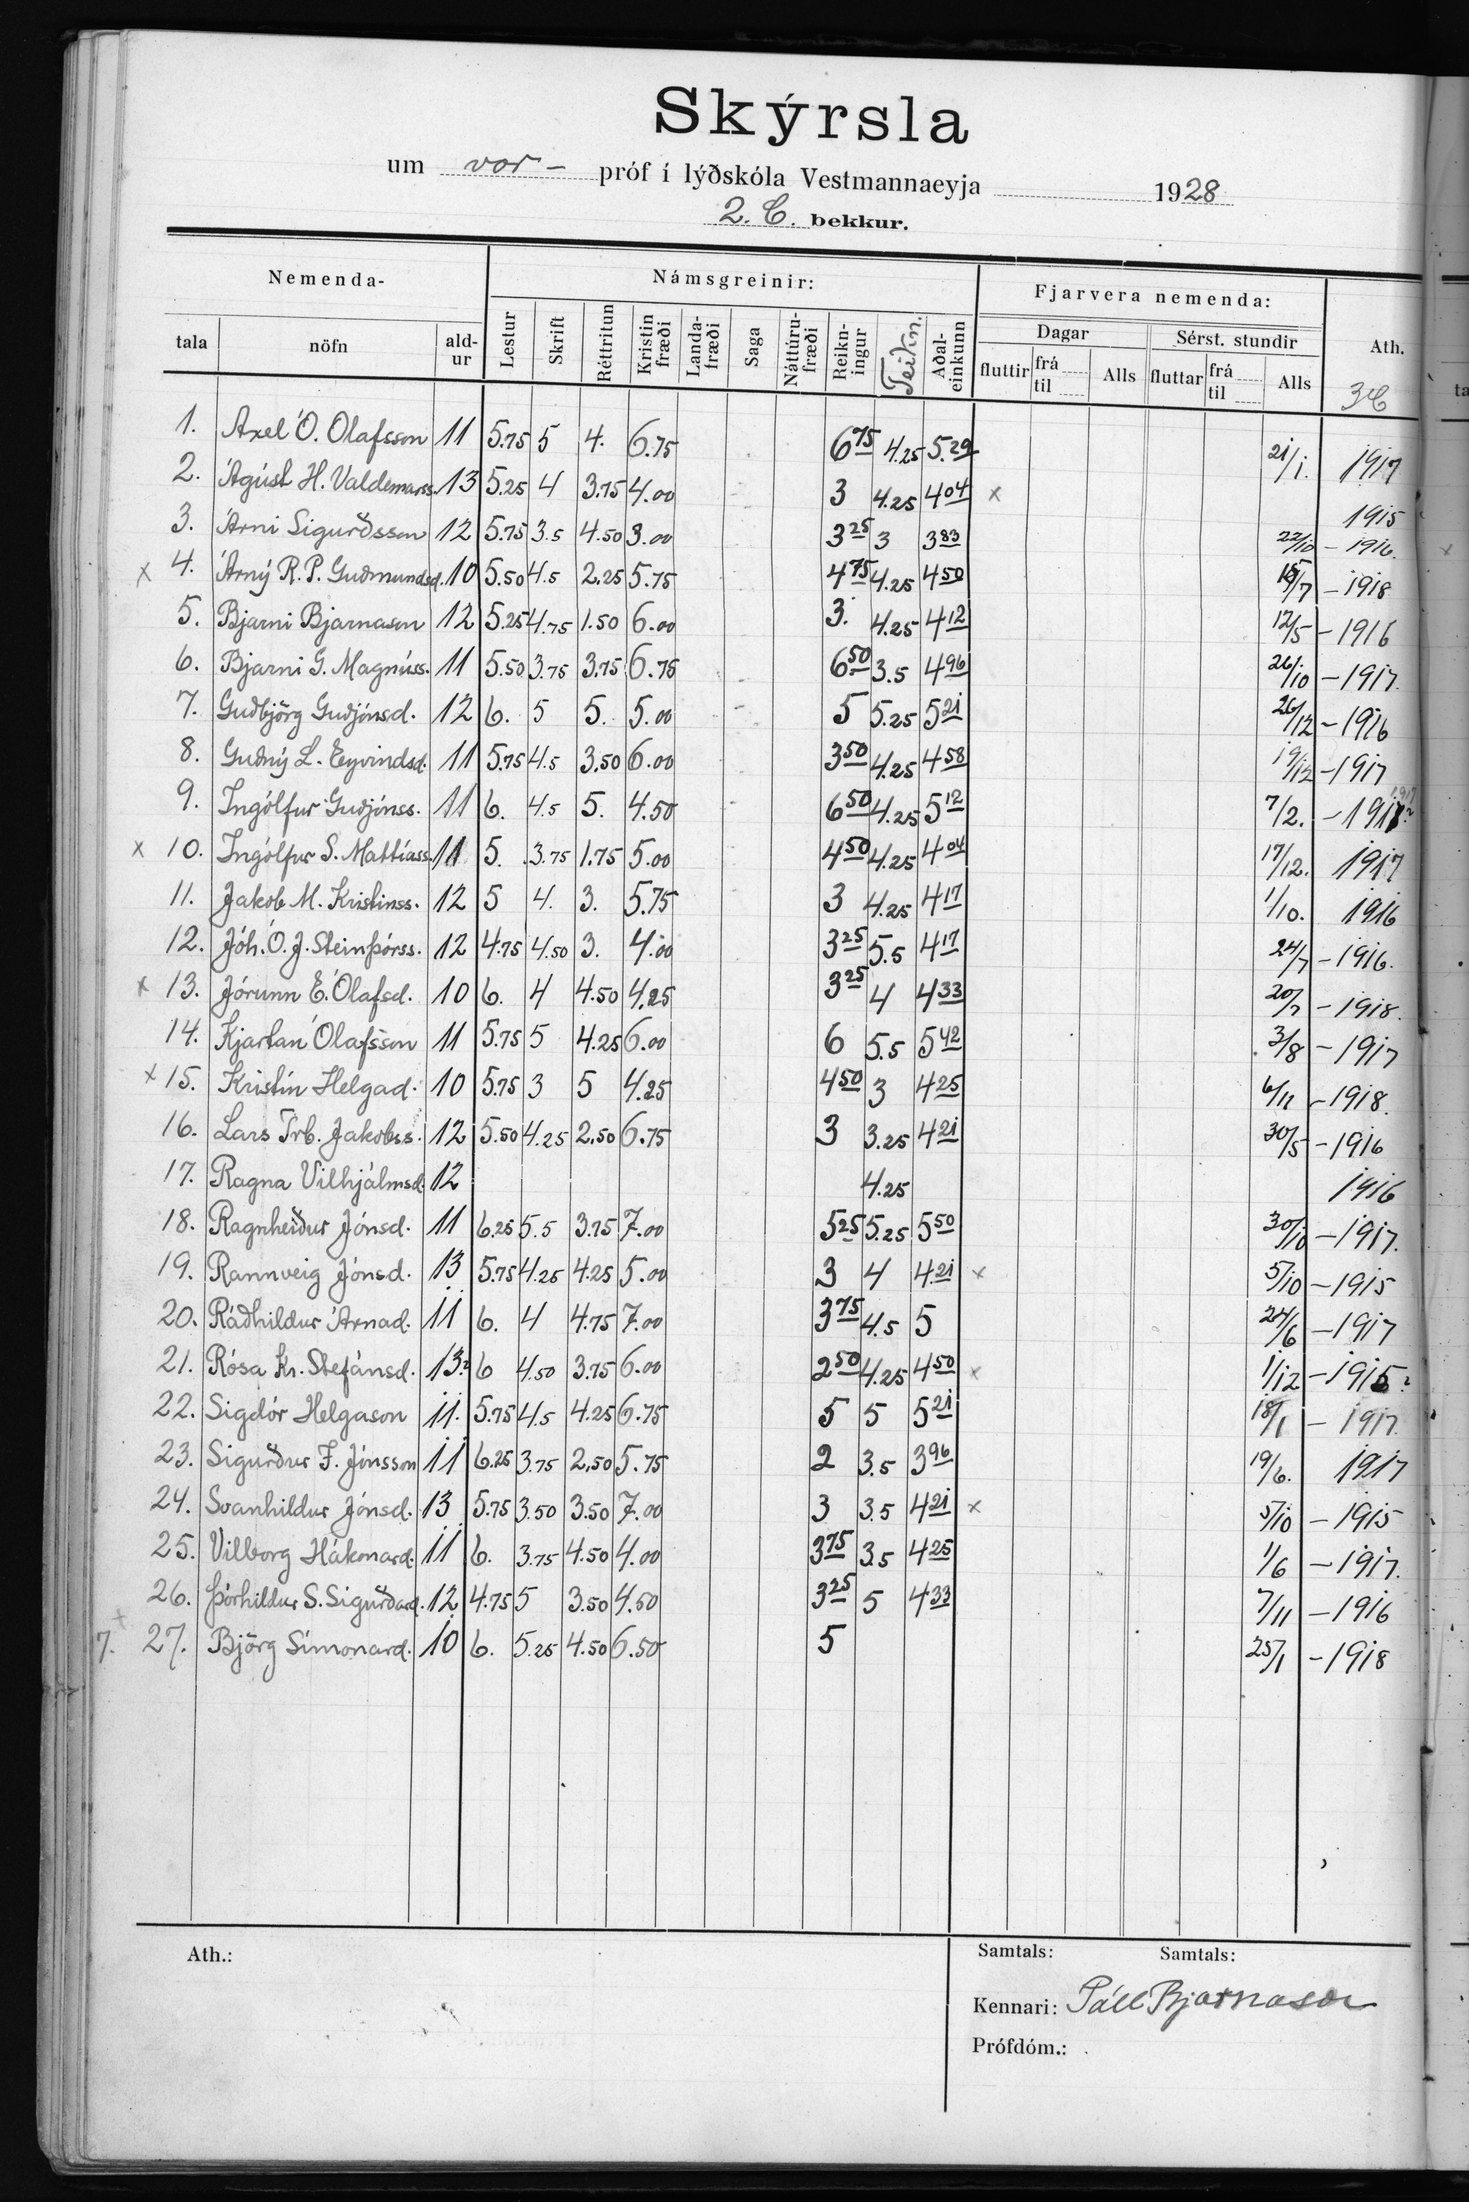 Skýrsla
um vor- próf í lýðskóla Vestmannaeyja 1928
2. C. bekkur.
Nemenda- Námsgreinir: Fjarvera nemenda: Ath.
Dagar Sérst. stundir
tala nöfn ald-ur Lestur Skrift Réttritun Kristin fræði Landa-fræði Saga Náttúru-fræði Reikn-ingur Teikn. Aðal-einkunn fluttir frá til Alls fluttar frá til Alls 3C
1. Axel Ó. Ólafsson 11 5.75 5 4. 6.75 6 75 4.25 5.29 21/1. 1917
2. Ágúst H. Valdemarss. 13 5.25 4 3.75 4.00 3 4.25 4 04 x 1915
3. Árni Sigurðsson 12 5.75 3.5 4.50 3.00 3 25 3 3 83 22/10 - 1916.
x 4. Árný R. P. Guðmundsd. 10 5.50 4.5 2.25 5.75 4 75 4.25 4 50 /7 - 1918
5. Bjarni Bjarnason 12 5.25 4.75 1.50 6.00 3. 4.25 4 12 12/5 - 1916
6. Bjarni G. Magnúss. 11 5.50 3.75 3.75 6.75 6 50 3.5 4 96 26/10 - 1917.
7. Guðbjörg Guðjónsd. 12 6. 5 5. 5.00 5 5.25 5 21 26/12 - 1916
8. Guðný L. Eyvindsd. 11 5.75 4.5 3.50 6.00 3 50 4.25 4 58 19/12 - 1917
9. Ingólfur Guðjónss. 11 6. 4.5 5. 4.50 6 50 4.25 5 12 7/2. - 1917? 1917
x 10. Ingólfur S. Mattíass. 11 5. 3.75 1.75 5.00 4 50 4.25 4 04 17/12. 1917
11. Jakob M. Kristinss. 12 5 4. 3. 5.75 3 4.25 4 17 1/10. 1916
12. Jóh. Ó. J. Steinþórss. 12 4.75 4.50 3. 4.00 3 25 5.5 4 17 24/7 - 1916.
x 13. Jórunn E. Ólafsd. 10 6. 4 4.50 4.25 3 25 4 4 33 20/7 - 1918.
14. Kjartan Ólafsson 11 5.75 5 4.25 6.00 6 5.5 5 42 3/8 - 1917
x 15. Kristín Helgad. 10 5.75 3 5 4.25 4 50 3 4 25 6/11 - 1918.
16. Lars Trb. Jakobss. 12 5.50 4.25 2.50 6.75 3 3.25 4 21 30/5 - 1916
17. Ragna Vilhjálmsd. 12 4.25 1916
18. Ragnheiður Jónsd. 11 6.25 5.5 3.75 7.00 5 25 5.25 5 50 30/10 - 1917.
19. Rannveig Jónsd. 13 5.75 4.25 4.25 5.00 3 4 4 21 x 5/10 - 1915
20. Ráðhildur Árnad. 11 6. 4 4.75 7.00 3 75 4.5 5 24/6 - 1917
21. Rósa Kr. Stefánsd. 13? 6 4.50 3.75 6.00 2 50 4.25 4 50 x 1/12 - 1915?
22. Sigdór Helgason 11. 5.75 4.5 4.25 6.75 5 5 5 21 18/1 - 1917.
23. Sigurður F. Jónsson 11 6.25 3.75 2.50 5.75 2 3.5 3 96 19/6. 1917
24. Svanhildur Jónsd. 13 5.75 3.50 3.50 7.00 3 3.5 4 21 x 5/10 - 1915
25. Vilborg Hákonard. 11 6. 3.75 4.50 4.00 3 75 3.5 4 25 1/6 - 1917.
26. Þórhildur S. Sigurðard. 12 4.75 5 3.50 4.50 3 25 5 4 33 7/11 - 1916
7. x 27. Björg Símonard. 10 6. 5.25 4.50 6.50 5 25/1 - 1918
Ath.: Samtals: Samtals:
Kennari: Páll Bjarnason
Prófdóm.: